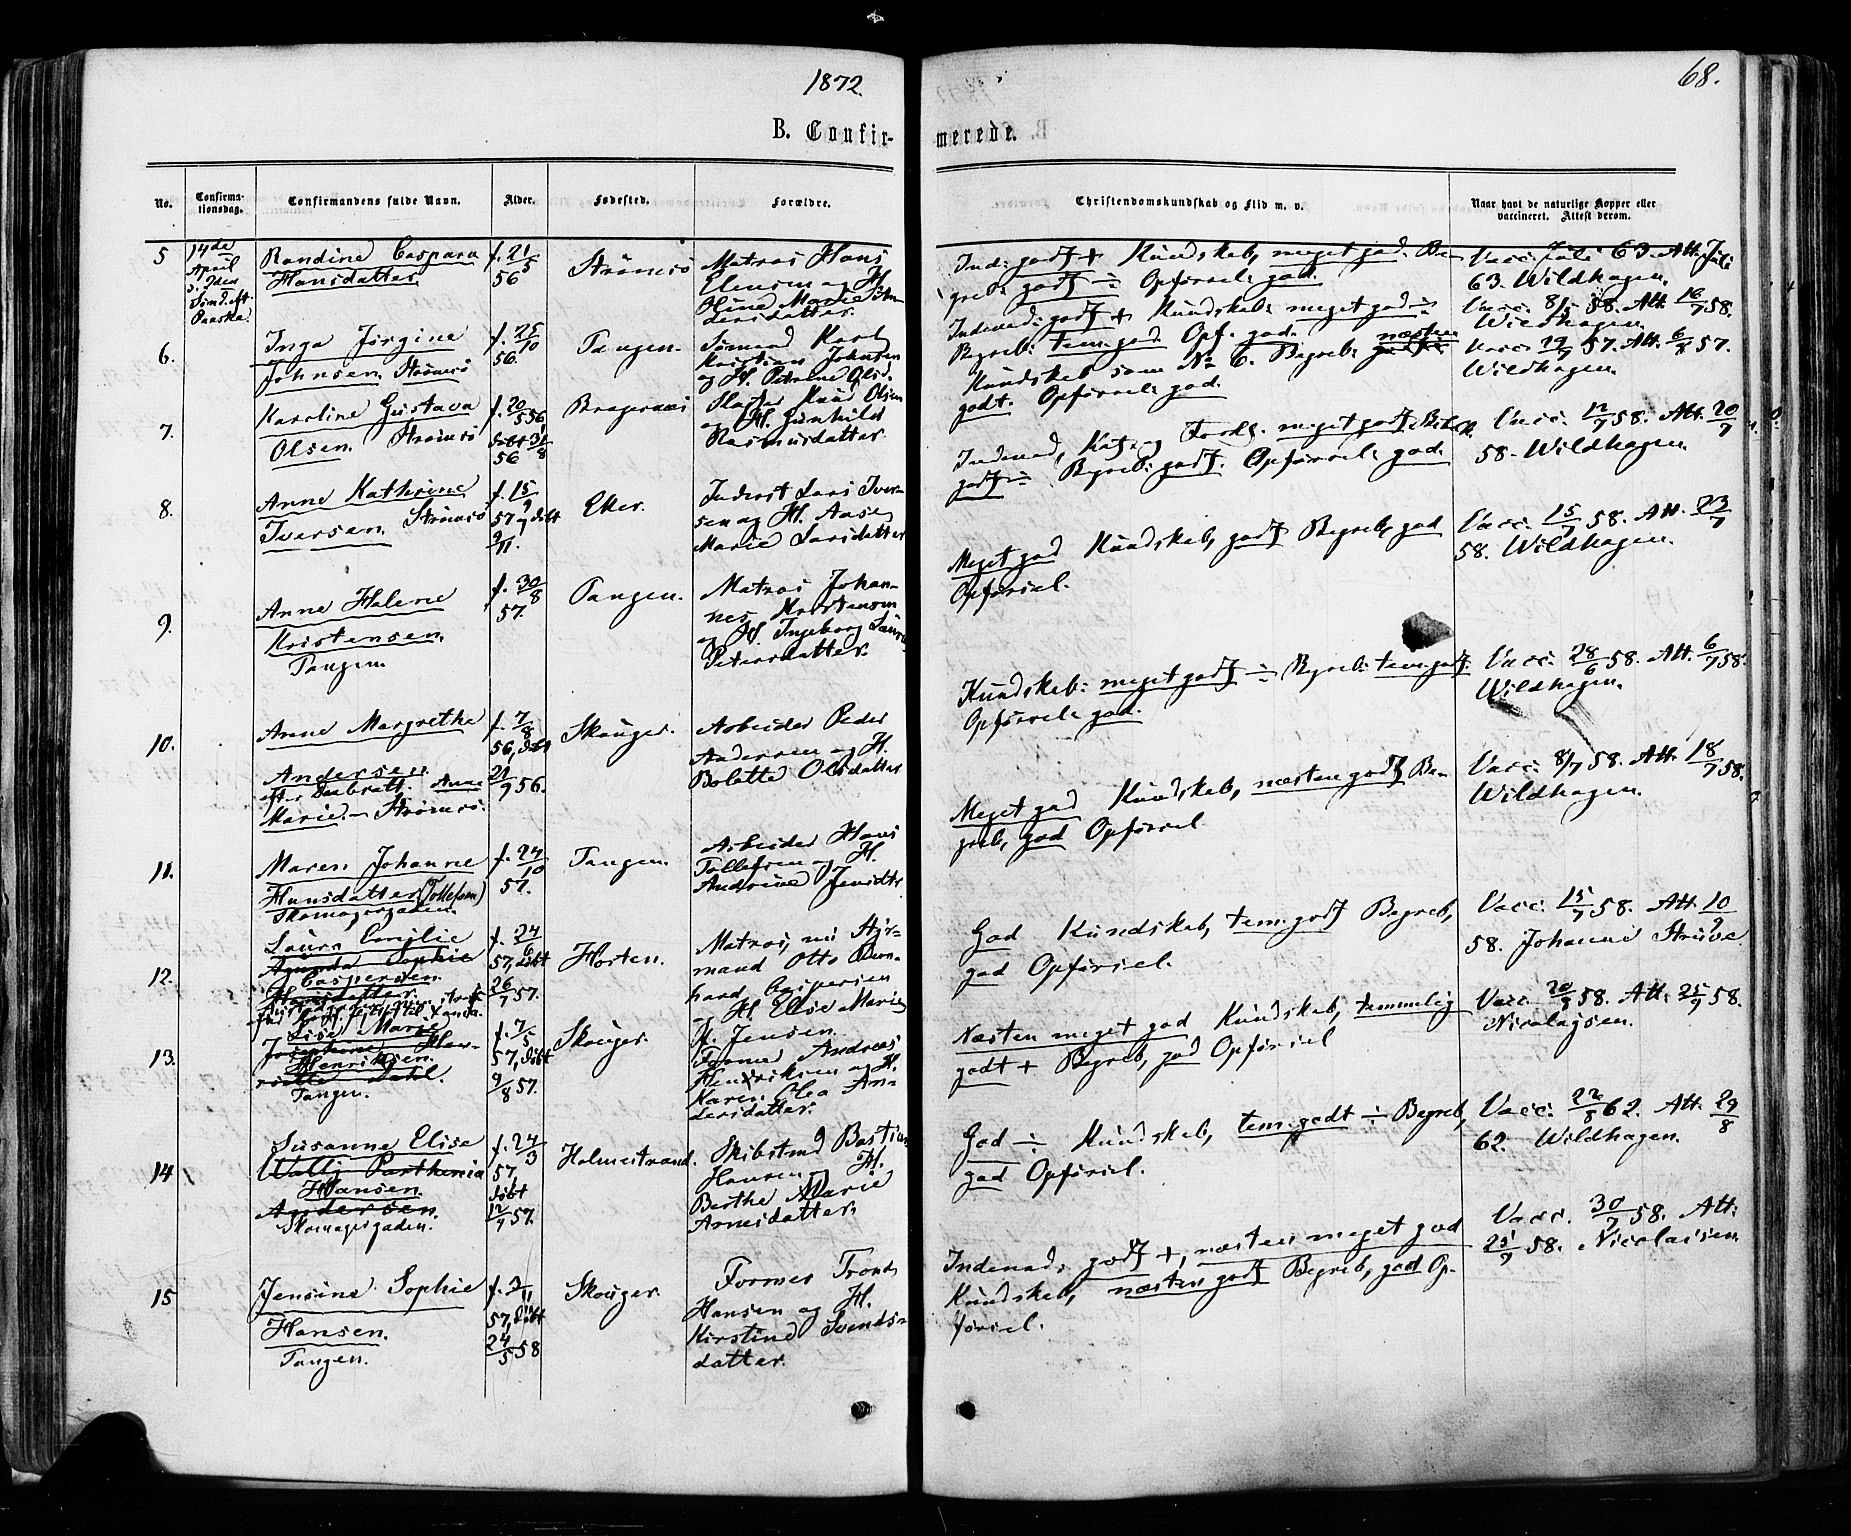 1872.
68.
B. Confir-
merede.
No.
Confirma-
tionsdag.
Confirmandens fulde Navn.
Alder.
Fødested.
Forældre.
Christendomskundskab og Flid m. v.
Naar havt de naturlige Kopper eller
vaccineret. Attest derom.
5
14de
April
Paaske.
Randine Caspara
Hansdatter
f. 21/5
56
Strømsø
Matros Hans
og H.
Oline Marie
datter.
Ind: godt + Kundskab, meget god. Be-
greb: godt ÷ Opførsel: god.
Vacc. Juli 63. Att. Juli
63. Wildhagen.
6.
Inga Jørgine
Johnsen. Strømsø
f. 25/10
56.
Tangen.
Sømand Karl
Kristian Johnsen
og H. Petrine Olsd.
Indenad: godt + Kundskab: meget god ÷
Begreb: tem. god Opf. god.
Vacc. 8/5 58. Att. 16/7 58.
Wildhagen.
7.
Karoline Gustava
Olsen. Strømsø
f. 20/5 56
døbt 31/8
56
Bragernæs
Knud Olsen
og H. Gunhild
Rasmusdatter.
Kundskab som No 6. Begreb: næsten
godt. Opførsel: god.
Wildhagen.
8.
Anne Kathrine
Iversen. Strømsø
f. 15/9
57, døbt
9/11.
Eker.
Inderst Lars Iver-
sen og H. Aase
Marie Larsdatter
Indenad, meget godt.
godt ÷ Begreb: godt. Opførsel: god.
Vacc. 12/7 58. Att. 20/7
58. Wildhagen.
9.
Anne Helene
Kristensen.
Tangen.
f. 30/8
57.
Tangen.
Matros Johan-
nes Kristensen
og H. Ingeborg Laura
Petersdatter.
Meget god Kundskab, godt Begreb, god
Opførsel.
Vacc. 15/7 58. Att. 23/7
58. Wildhagen.
10.
Anne Margrethe
Andersen
efter Daabsatt. Anne
Marie – Strømsø.
f. 7/8
56, døbt
21/9 56.
Skouger.
Arbeider Peder
Andersen og H.
Bolette Olsdatter
Kundskab: meget godt ÷ Begreb: tem. godt.
Opførsel: god.
Vacc. 28/6 58. Att. 6/7 58.
Wildhagen.
11.
Maren Johanne
Hansdatter (Tollefsen)
Skomagergaden.
f. 24/10
57.
Tangen.
Arbeider Hans
Tollefsen og H.
Andrine Jensdtr
Meget god Kundskab, næsten godt Be-
greb, god Opførsel
Vacc. 8/7 58. Att. 18/7 58.
Wildhagen.
12.
Laura Emilie
Amanda Sophie
Caspersen
Hansdatter
f. 24/6
57, døbt
26/7 57.
Horten.
Matros, nu Styr-
mand Otto Bern-
hard Caspersen
og H. Elise Marie
H. Jensen.
God Kundskab, tem. godt Begreb,
god Opførsel.
Vacc. 15/7 58. Att. 10/9
58. Johanne Struve
13.
Lise Marie
Henriksen.
Tangen.
f. 7/5
57, døbt
9/8 57.
Skouger.
Former Andreas
Henriksen og H.
Karen Olea An-
dersdatter.
Næsten meget god Kundskab, temmelig
godt + Begreb, god Opførsel
Vacc. 20/9 58. Att. 25/9 58.
Nicolaysen.
14
Susanne Elise
Wally Parthenia
Hansen.
Andersen
Skomagergaden.
f. 24/3
57,
døbt
12/7 57.
Holmestrand.
Skibstmd Bastian
Hansen og H.
Berthe Marie
Arnesdatter.
God ÷ Kundskab, tem. godt ÷ Begreb,
god Opførsel.
Vacc. 22/8 62. Att. 29/8
62. Wildhagen.
15
Jensine Sophie
Hansen.
Tangen.
f. 3/11
57, døbt
24/5 58
Skouger.
Former Trond
Hansen og H.
Kirstine Svends-
datter.
Indenad: godt +, næsten meget god
Kundskab, næsten godt Begreb, god Op-
førsel.
Vacc. 30/7 58. Att.
25/9 58. Nicolaisen